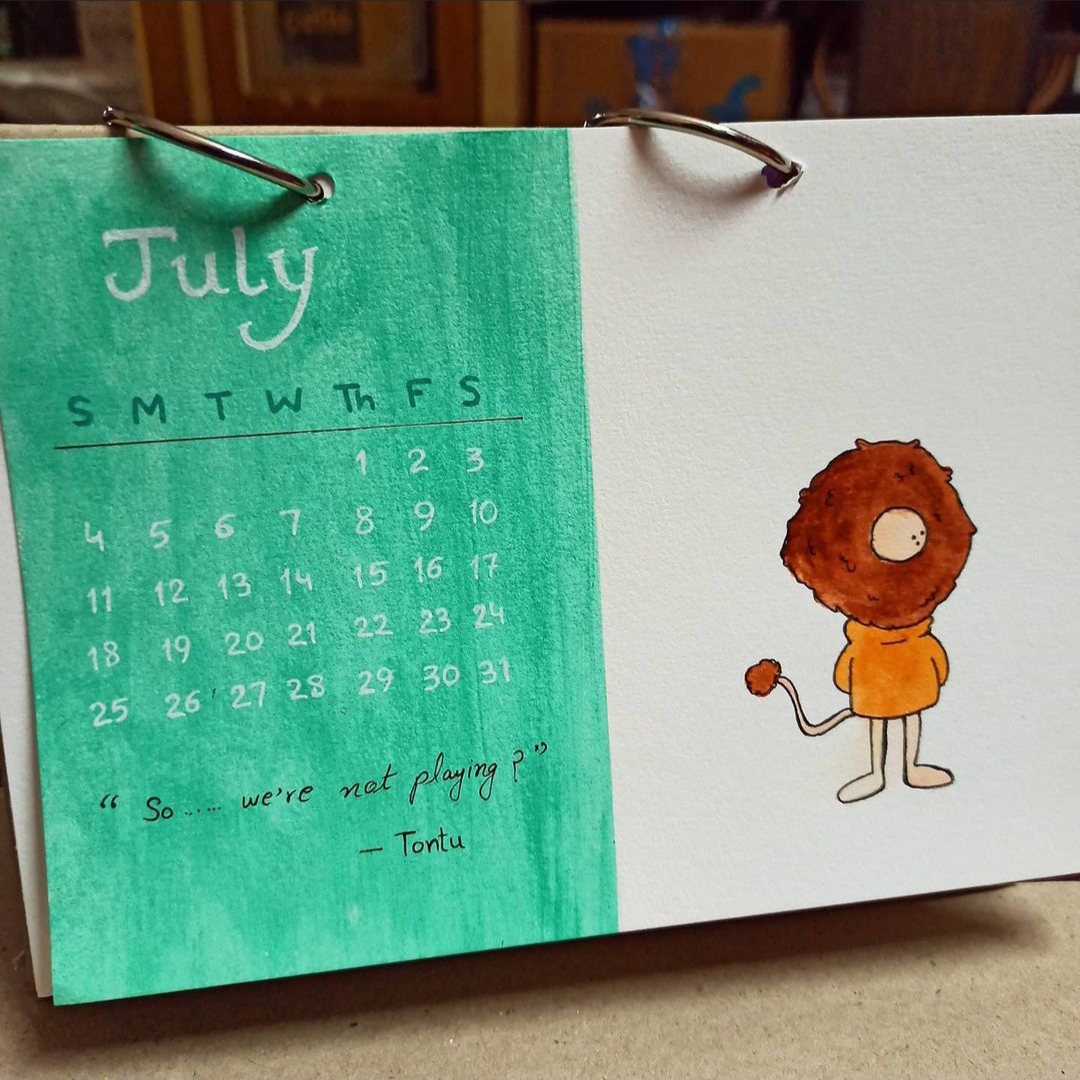 July
S M T W Th F S
1 2 3
4 5 6 7 8 9 10
11 12 13 14 15 16 17
18 19 20 21 22 23 24
25 26 27 28 29 30 31
“ So ..... we're not playing ? ”
— Tontu